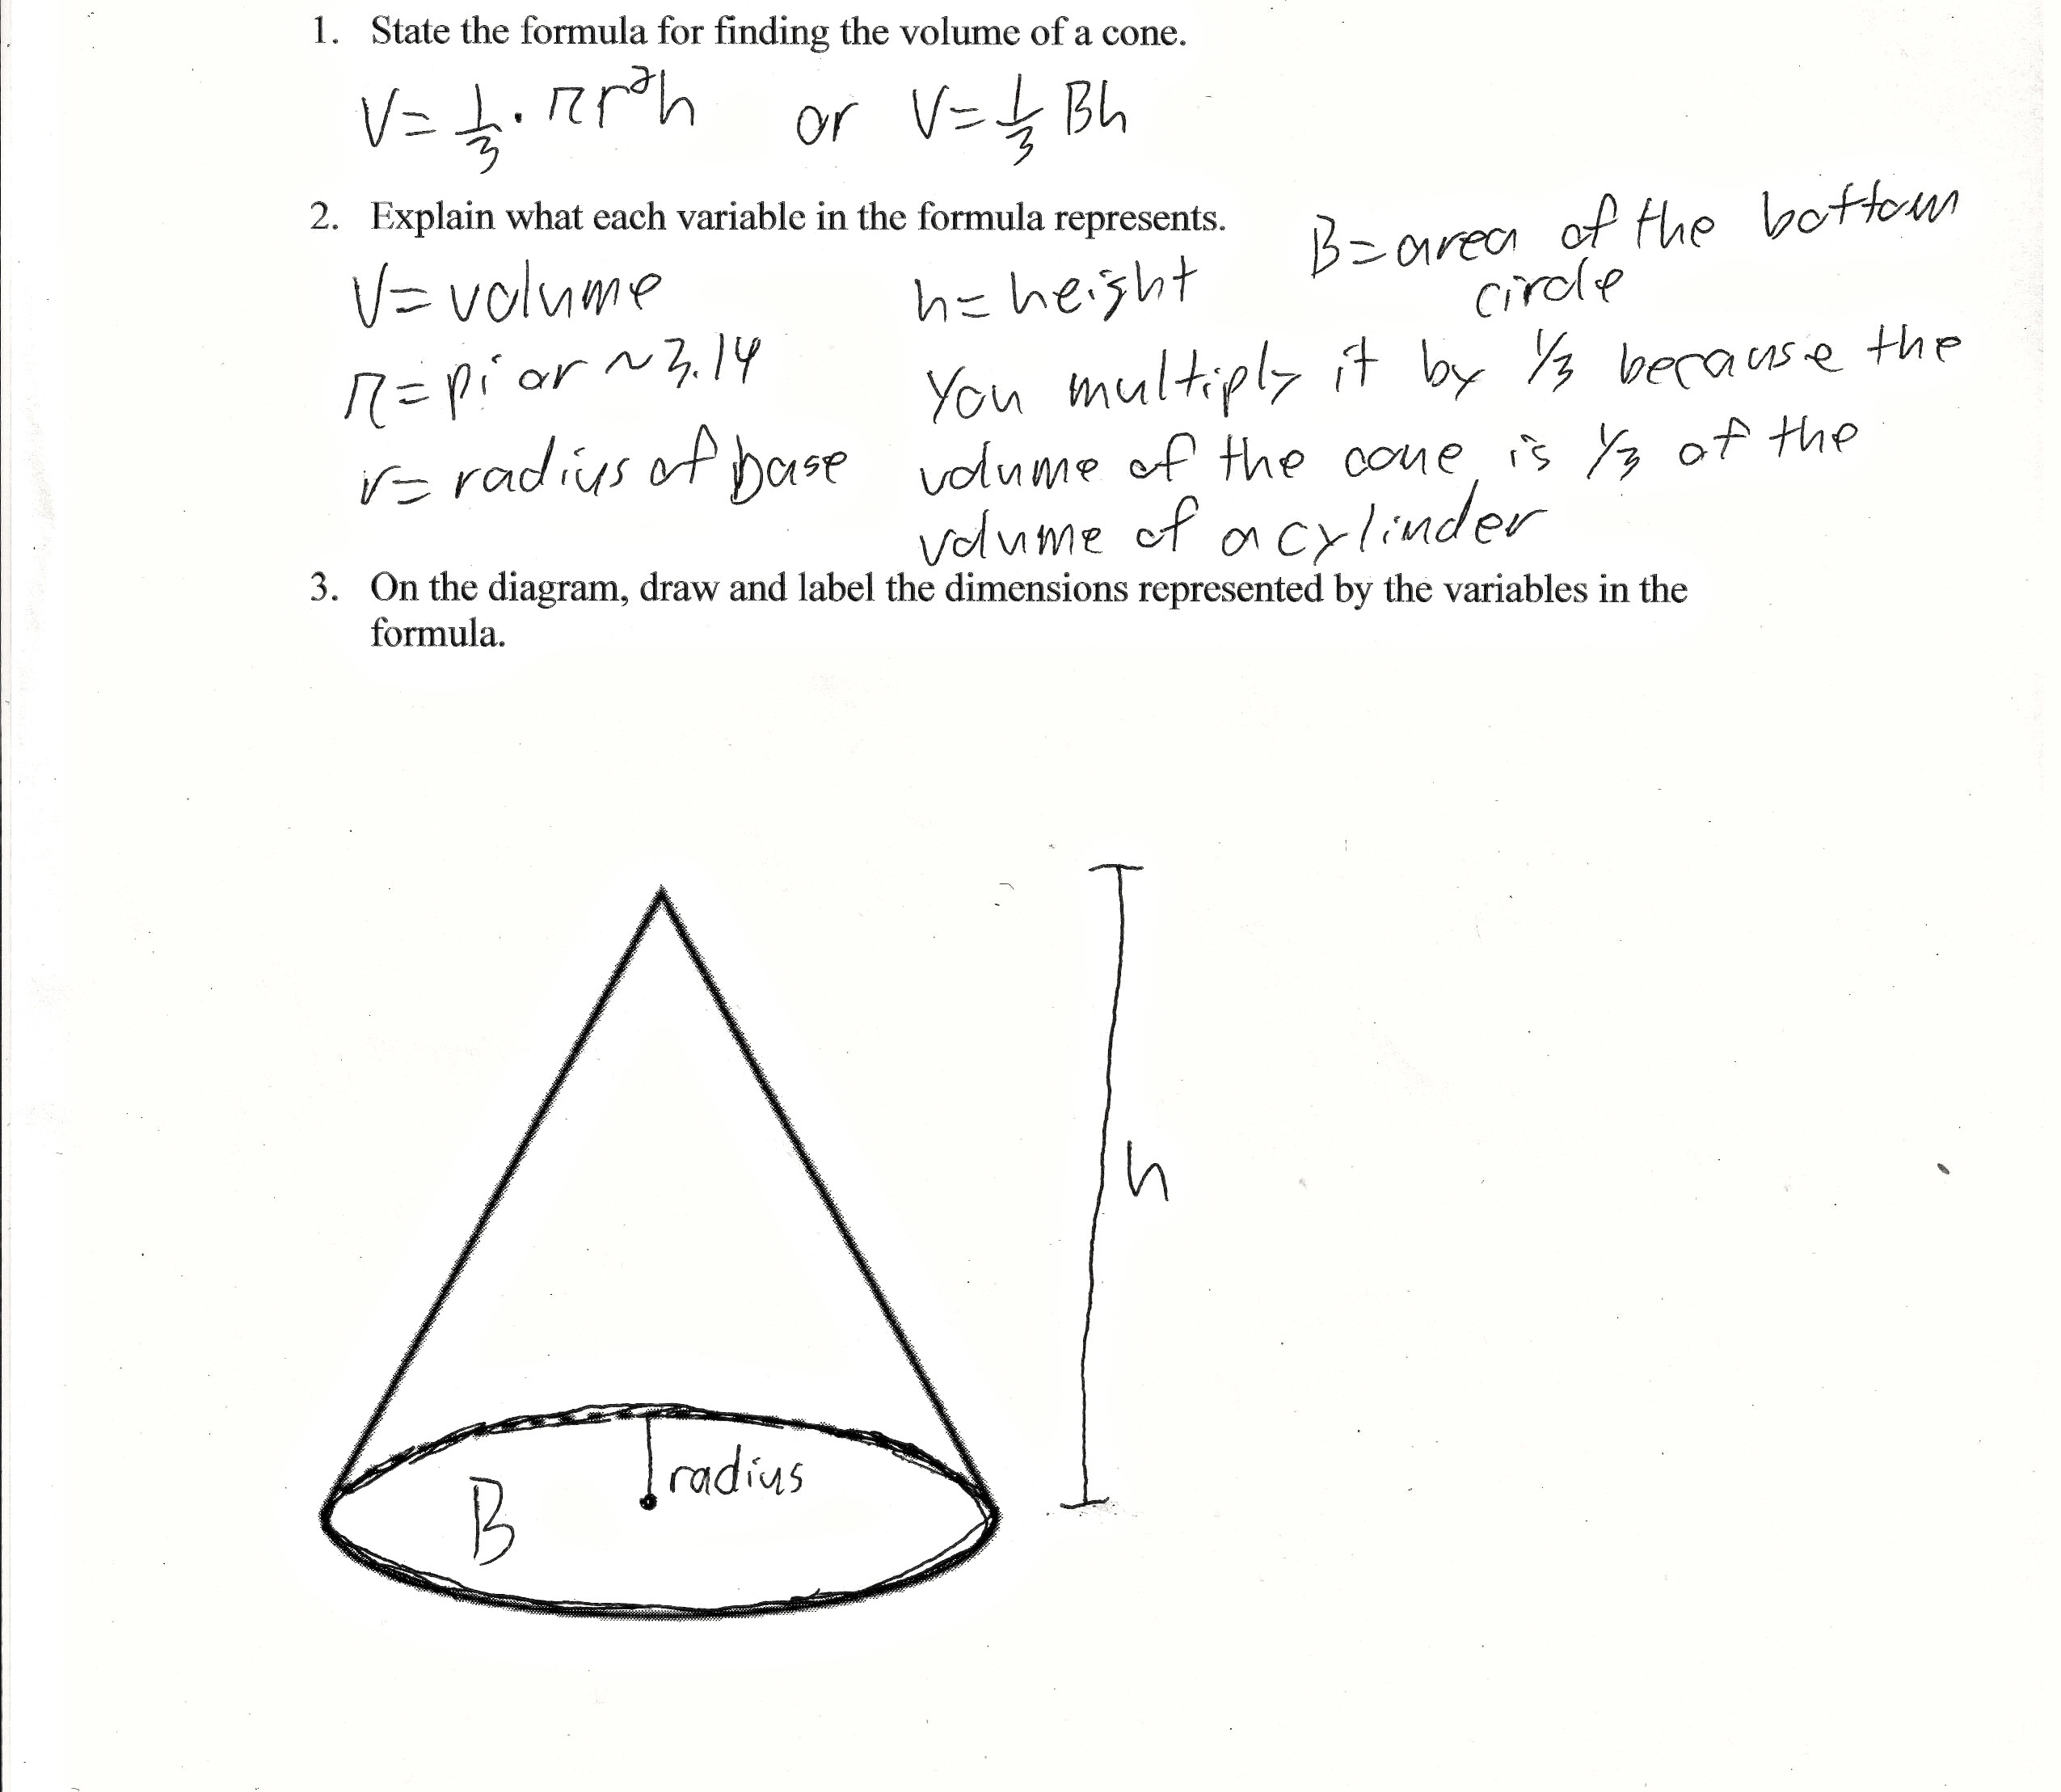 1. State the formula for finding the volume of a cone.
V = 1/3 · πr²h or V = 1/3 Bh
2. Explain what each variable in the formula represents.
B = area of the bottom
circle
V = volume
h = height
π = pi or ~3.14
r = radius of base
You multiply it by 1/3 because the
volume of the cone is 1/3 of the
volume of a cylinder
3. On the diagram, draw and label the dimensions represented by the variables in the
formula.
h
radius
B